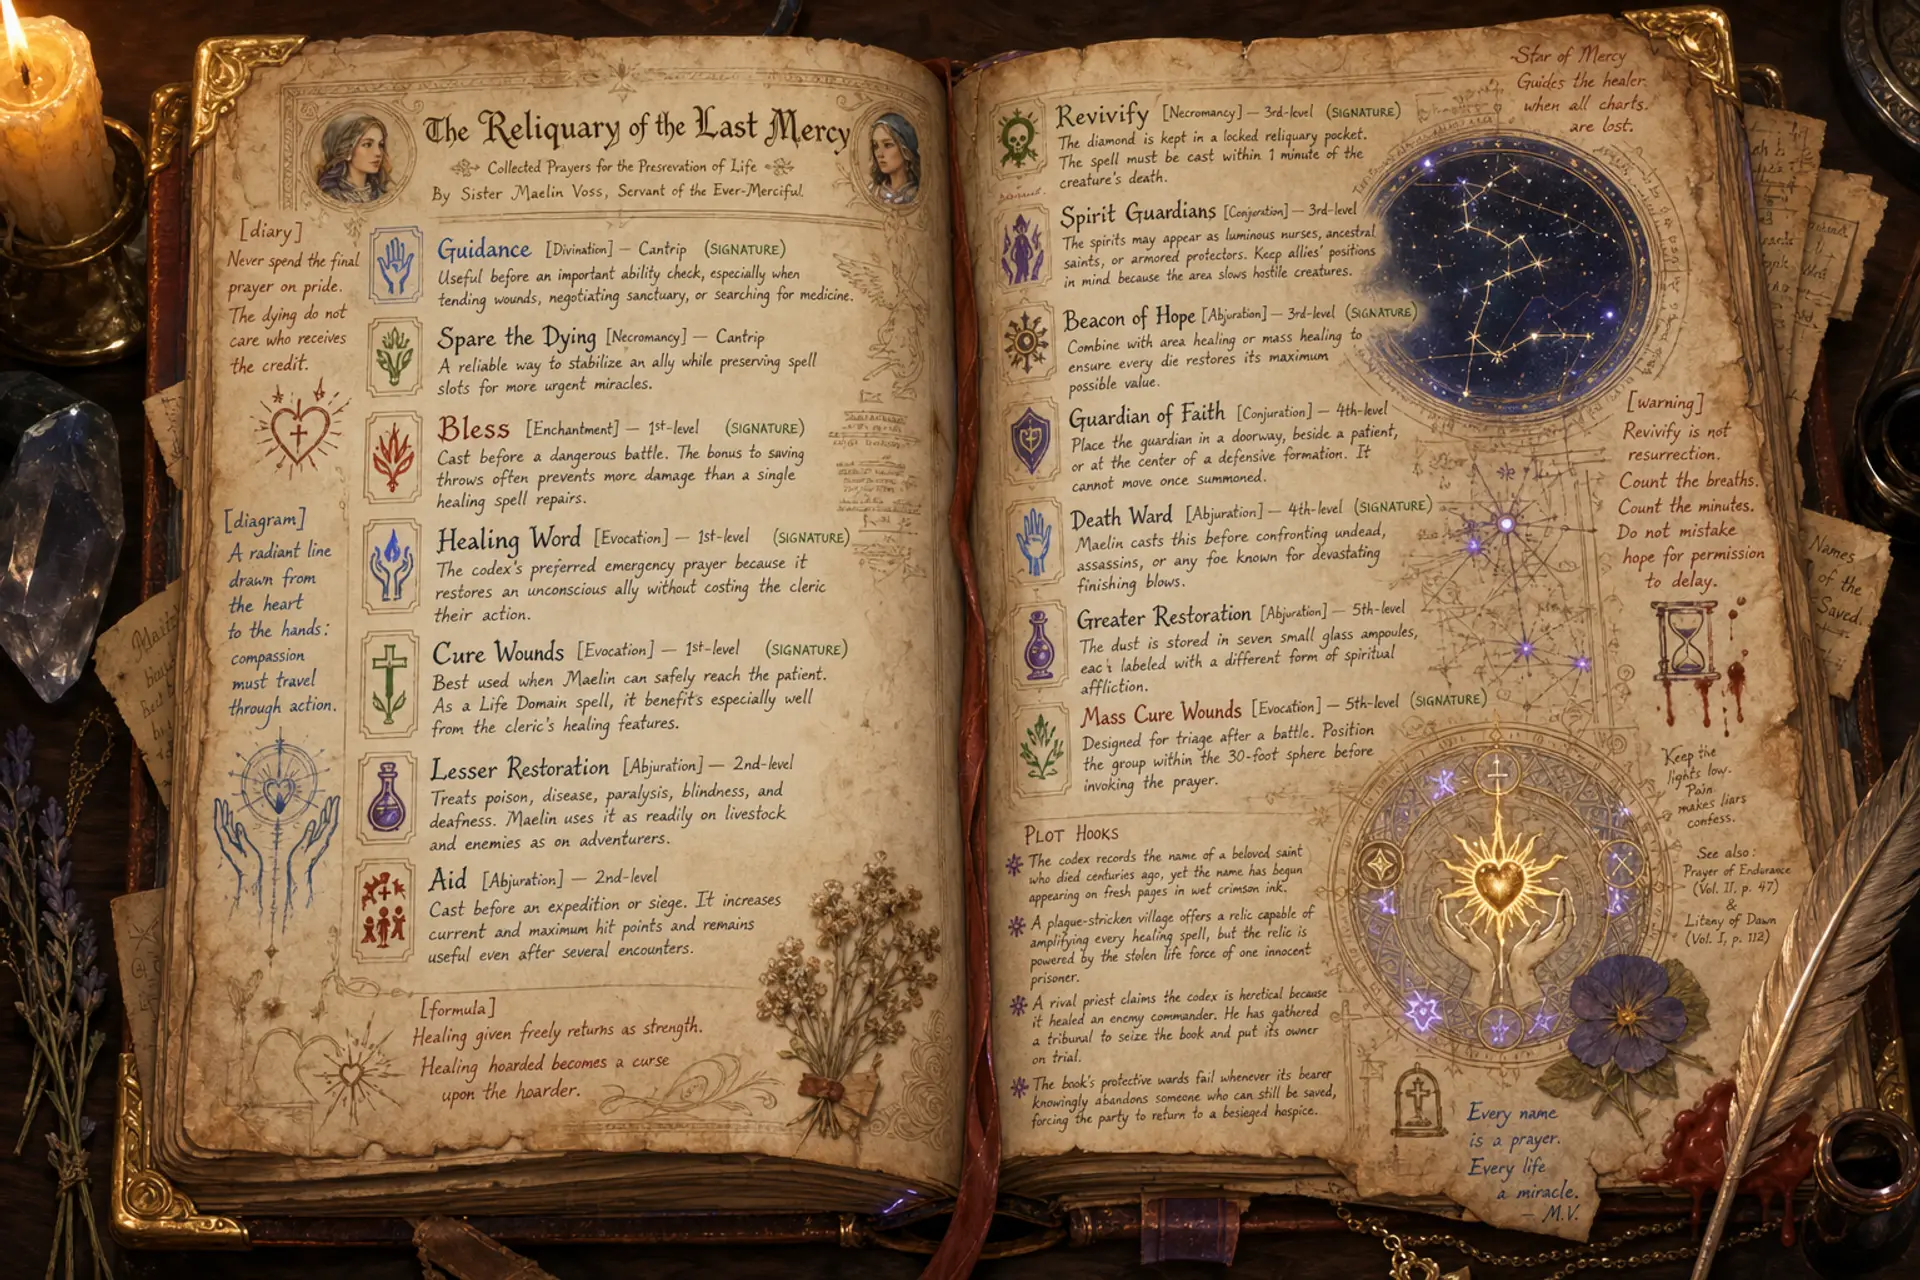 The Reliquary of the Last Mercy
Collected Prayers for the Presrevation of Life
By Sister Maelin Voss, Servant of the Ever-Merciful.
[diary]
Never spend the final
prayer on pride.
The dying do not
care who receives
the credit.
[diagram]
A radiant line
drawn from
the heart
to the hands:
compassion
must travel
through action.
Guidance [Divination] — Cantrip (SIGNATURE)
Useful before an important ability check, especially when
tending wounds, negotiating sanctuary, or searching for medicine.
Spare the Dying [Necromancy] — Cantrip
A reliable way to stabilize an ally while preserving spell
slots for more urgent miracles.
Bless [Enchantment] — 1st-level (SIGNATURE)
Cast before a dangerous battle. The bonus to saving
throws often prevents more damage than a single
healing spell repairs.
Healing Word [Evocation] — 1st-level (SIGNATURE)
The codex's preferred emergency prayer because it
restores an unconscious ally without costing the cleric
their action.
Cure Wounds [Evocation] — 1st-level (SIGNATURE)
Best used when Maelin can safely reach the patient.
As a Life Domain spell, it benefits especially well
from the cleric's healing features.
Lesser Restoration [Abjuration] — 2nd-level
Treats poison, disease, paralysis, blindness, and
deafness. Maelin uses it as readily on livestock
and enemies as on adventurers.
Aid [Abjuration] — 2nd-level
Cast before an expedition or siege. It increases
current and maximum hit points and remains
useful even after several encounters.
[formula]
Healing given freely returns as strength.
Healing hoarded becomes a curse
upon the hoarder.
Revivify [Necromancy] — 3rd-level (SIGNATURE)
The diamond is kept in a locked reliquary pocket.
The spell must be cast within 1 minute of the
creature's death.
Spirit Guardians [Conjuration] — 3rd-level
The spirits may appear as luminous nurses, ancestral
saints, or armored protectors. Keep allies' positions
in mind because the area slows hostile creatures.
Beacon of Hope [Abjuration] — 3rd-level (SIGNATURE)
Combine with area healing or mass healing to
ensure every die restores its maximum
possible value.
Guardian of Faith [Conjuration] — 4th-level
Place the guardian in a doorway, beside a patient,
or at the center of a defensive formation. It
cannot move once summoned.
Death Ward [Abjuration] — 4th-level (SIGNATURE)
Maelin casts this before confronting undead,
assassins, or any foe known for devastating
finishing blows.
Greater Restoration [Abjuration] — 5th-level
The dust is stored in seven small glass ampoules,
labeled with a different form of spiritual
affliction.
Mass Cure Wounds [Evocation] — 5th-level (SIGNATURE)
Designed for triage after a battle. Position
the group within the 30-foot sphere before
invoking the prayer.
PLOT HOOKS
The codex records the name of a beloved saint
who died centuries ago, yet the name has begun
appearing on fresh pages in wet crimson ink.
A plague-stricken village offers a relic capable of
amplifying every healing spell, but the relic is
powered by the stolen life force of one innocent
prisoner.
A rival priest claims the codex is heretical because
it healed an enemy commander. He has gathered
a tribunal to seize the book and put its owner
on trial.
The book's protective wards fail whenever its bearer
knowingly abandons someone who can still be saved,
forcing the party to return to a besieged hospice.
Star of Mercy
Guides the healer
when all charts
are lost.
[warning]
Revivify is not
resurrection.
Count the breaths.
Count the minutes.
Do not mistake
hope for permission
to delay.
Keep the
lights low.
Pain
makes liars
confess.
See also:
Prayer of Endurance
(Vol. II, p. 47)
&
Litany of Dawn
(Vol. I, p. 112)
Every name
is a prayer.
Every life
a miracle.
— M.V.
Names
of the
Saved.